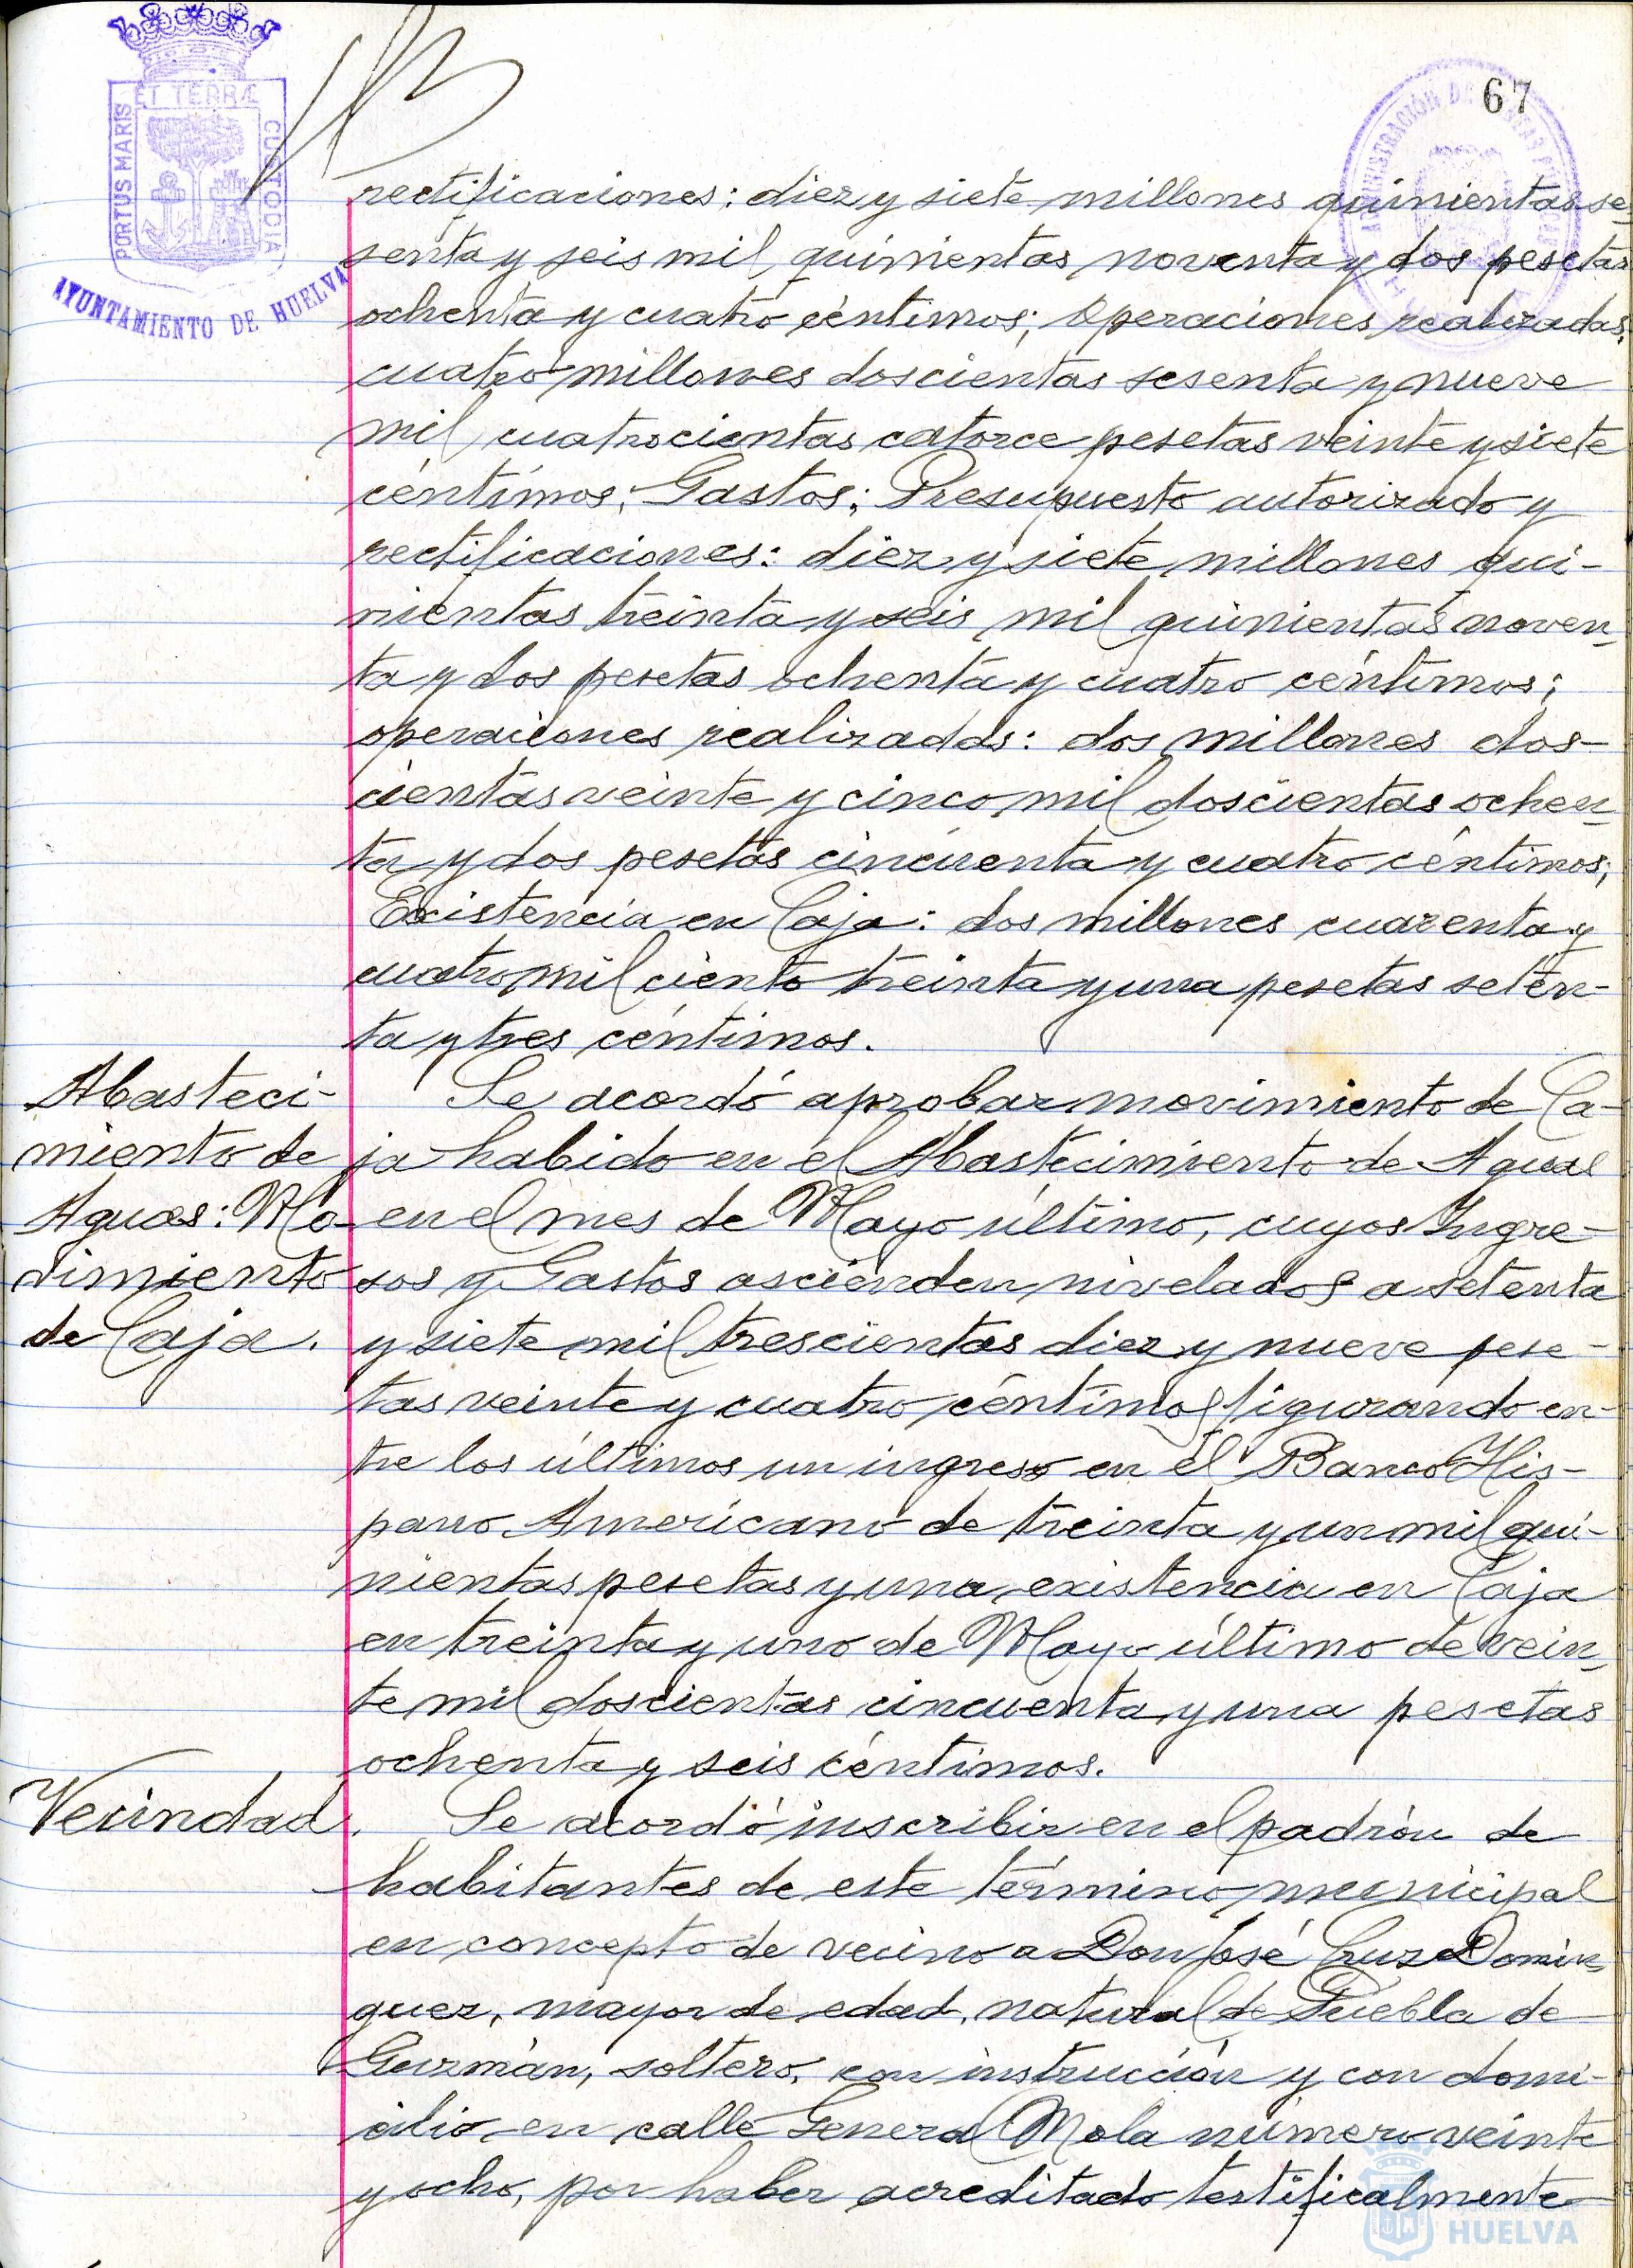 ET TERRÆ
PORTUS MARIS
CUSTODIA
AYUNTAMIENTO DE HUELVA
67
rectificaciones: diez y siete millones quinientas se-
senta y seis mil quinientas noventa y dos pesetas
ochenta y cuatro céntimos; Operaciones realizadas,
cuatro millones doscientas sesenta y nueve
mil cuatrocientas catorce pesetas veinte y siete
céntimos; Gastos; Presupuesto autorizado y
rectificaciones: diez y siete millones qui-
nientas treinta y seis mil quinientas noven-
ta y dos pesetas ochenta y cuatro céntimos;
operaciones realizadas: dos millones dos-
cientas veinte y cinco mil doscientas ochen-
ta y dos pesetas cincuenta y cuatro céntimos;
Existencia en Caja: dos millones cuarenta y
cuatro mil ciento treinta y una pesetas seten-
ta y tres céntimos.
Abasteci-
miento de
Aguas: Mo-
vimiento
de Caja.
Se acordó aprobar movimiento de Ca-
ja habido en el Abastecimiento de Aguas
en el mes de Mayo último, cuyos Ingre-
sos y Gastos ascienden nivelados a setenta
y siete mil trescientas diez y nueve pese-
tas veinte y cuatro céntimos figurando en-
tre los últimos un ingreso en el Banco His-
pano Americano de treinta y un mil qui-
nientas pesetas y una existencia en Caja
en treinta y uno de Mayo último de vein-
te mil doscientas cincuenta y una pesetas
ochenta y seis céntimos.
Vecindad.
Se acordó inscribir en el padrón de
habitantes de este término municipal
en concepto de vecino a Don José Cruz Domín-
guez, mayor de edad, natural de Puebla de
Guzmán, soltero, con instrucción y con domi-
cilio en calle General Mola número veinte
y ocho, por haber acreditado testificalmente
HUELVA